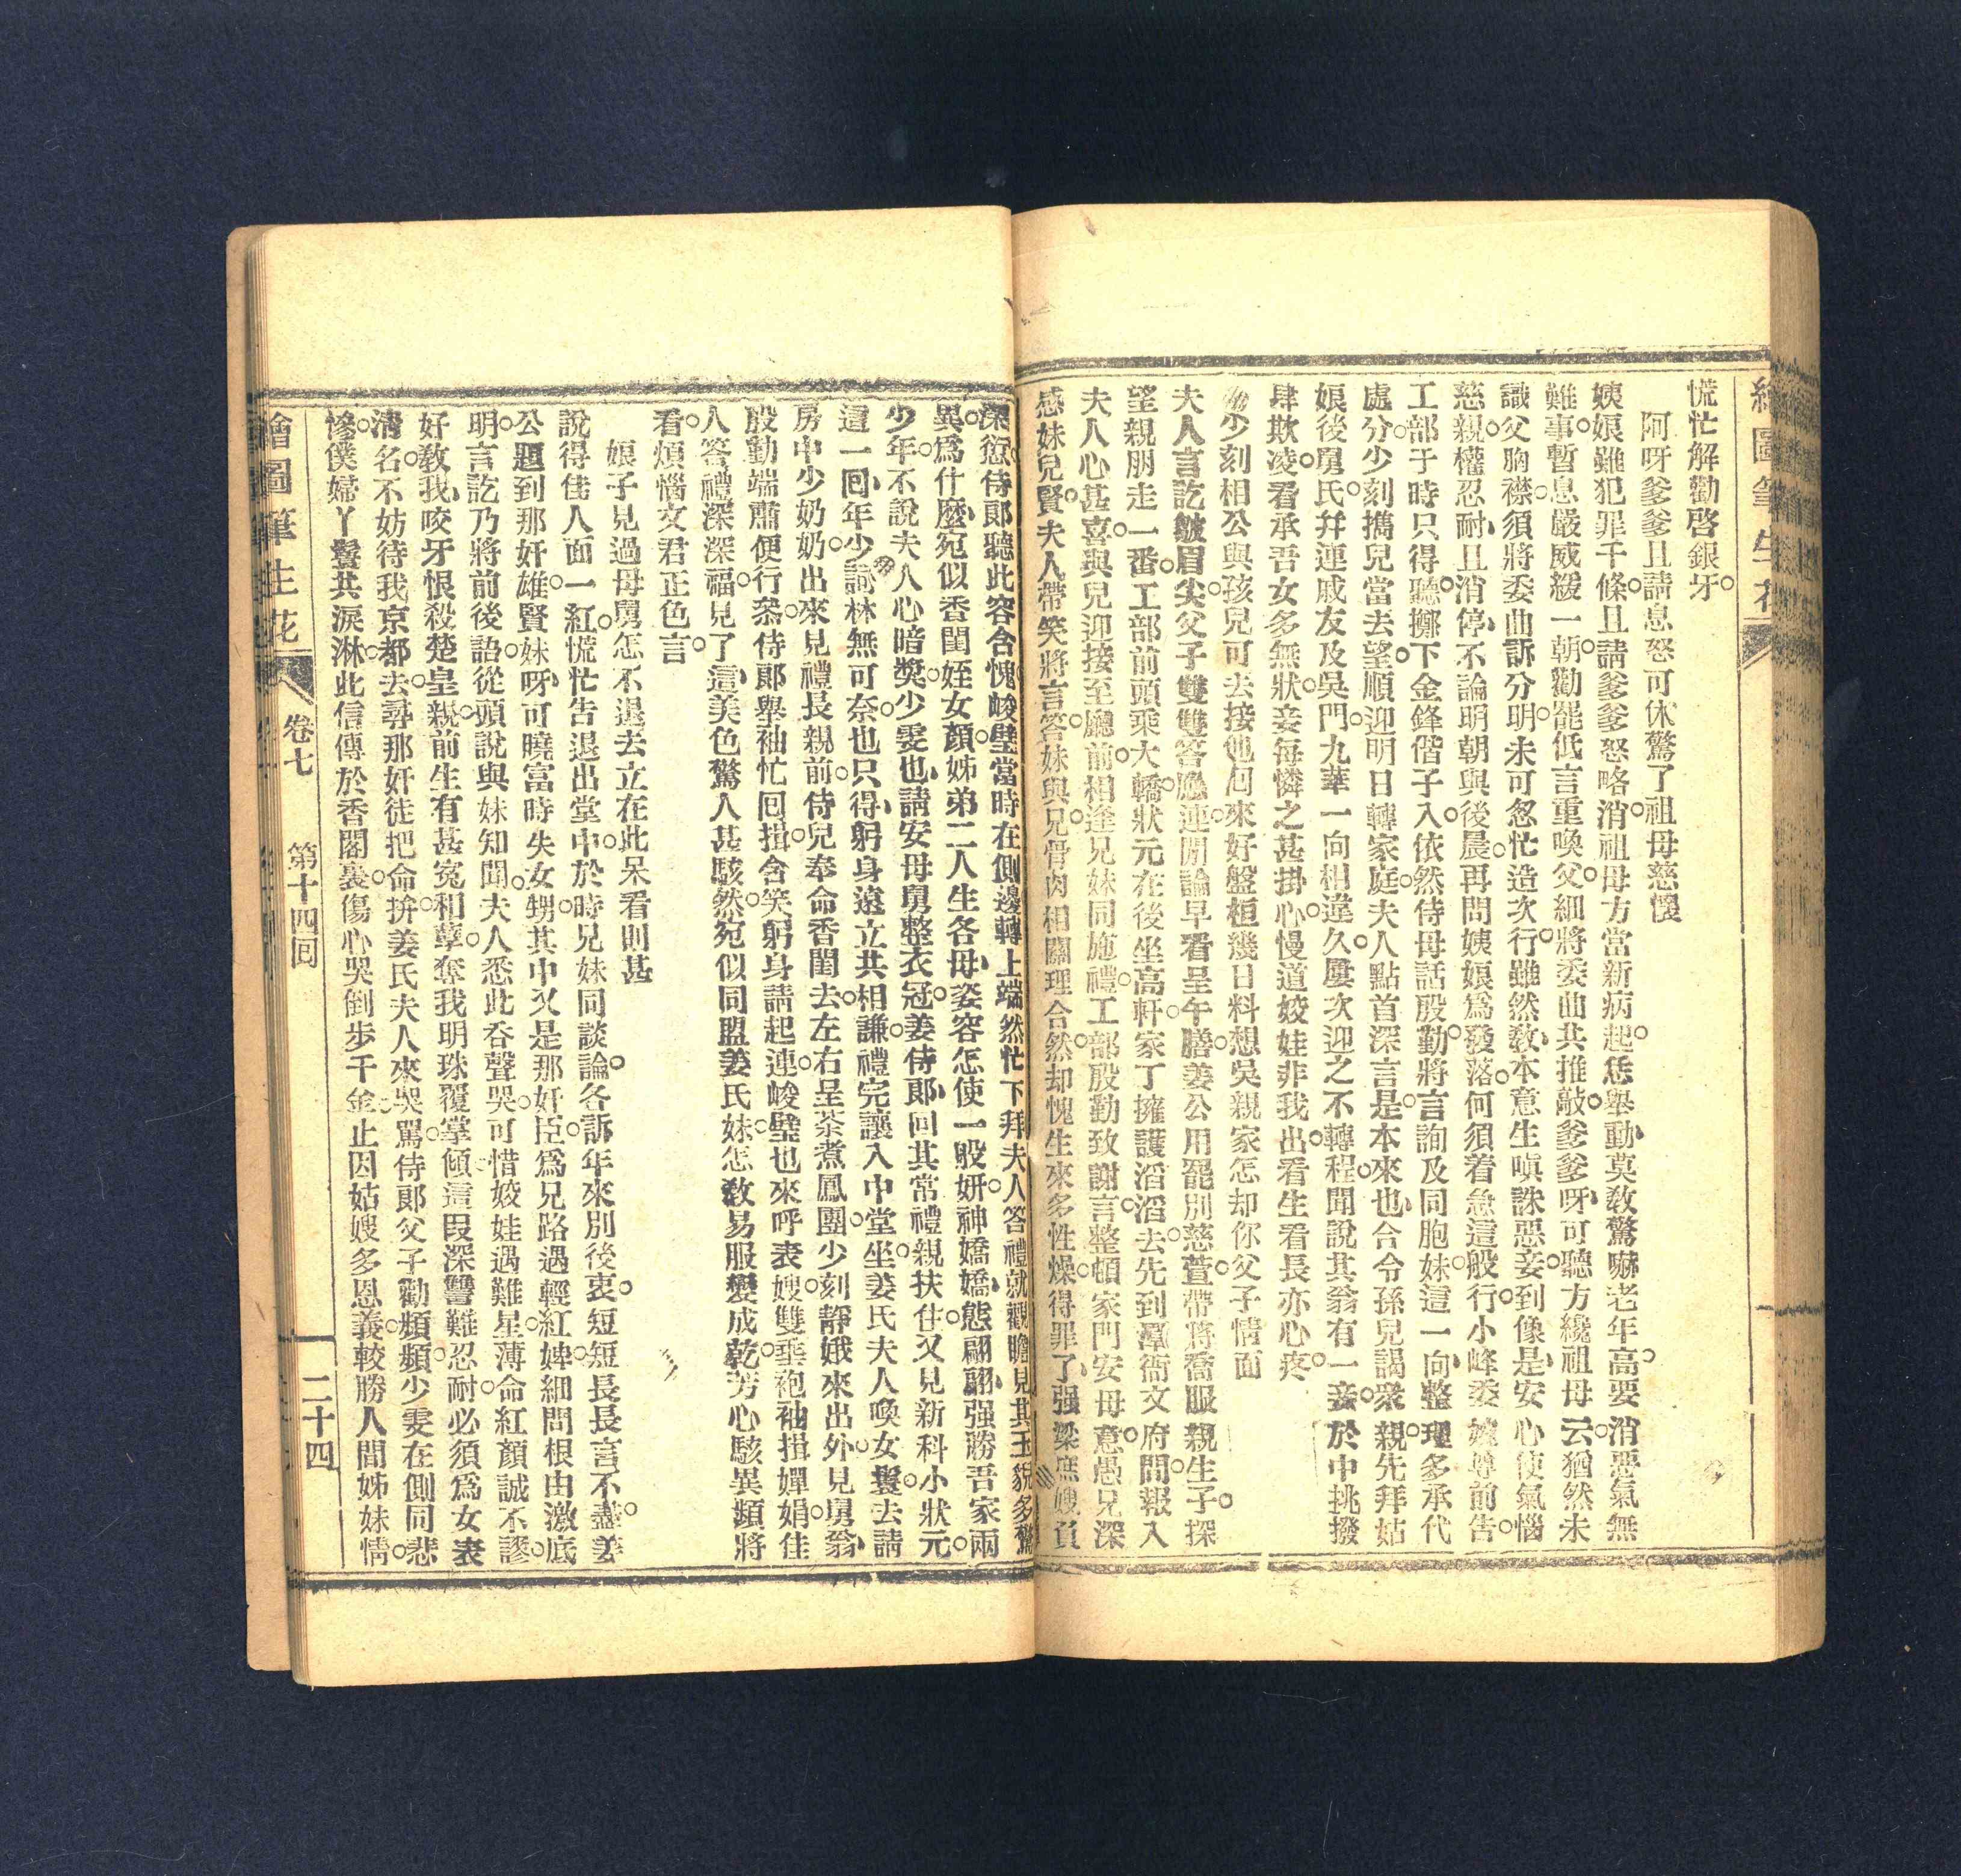 繪圖筆生花
慌忙解勸啓銀牙。
阿呀爹爹且請息怒可休驚了祖母慈懷
姨娘雖犯罪千條。且請爹爹怒略消。祖母方當新病起。恁舉動莫教驚嚇老年高。要消惡氣無
難事。暫息嚴威緩一朝。勸罷低言重喚父。細將委曲共推敲。爹爹呀可聽方纔祖母云。猶然未
識父胸襟。須將委曲訴分明。未可忽忙造次行。雖然教本意生嗔誅惡妾。到像是安心使氣惱
慈親。權忍耐且消停。不論明朝與後晨。再問姨娘爲發落。何須着急這般行。小峰委婉尊前告。
工部于時只得聽。擲下金鋒偕子入。依然侍母話殷勤。將言詢及同胞妹。這一向整理多承代
處分。少刻擕兒當去望。順迎明日轉家庭。夫人點首深言是。本來也合令孫兒謁衆親。先拜姑
娘後舅氏。幷連戚友及吳門。九華一向相違久。屢次迎之不轉程。聞說其翁有一妾。於中挑撥
肆欺凌。看承吾女多無狀。妾每憐之甚掛心。慢道姣娃非我出。看生看長亦心疼。
少刻相公與孩兒可去接他囘來好盤桓幾日料想吳親家怎却你父子情面
夫人言訖皺眉尖。父子雙雙答應連。閒論早看呈午膳。姜公用罷別慈萱。帶將喬服親生子。探
望親朋走一番。工部前頭乘大轎。狀元在後坐高軒。家丁擁護滔滔去。先到潭衙文府間。報入
夫人心甚喜。與兒迎接至廳前。相逢兄妹同施禮。工部殷勤致謝言。整頓家門安母意。愚兄深
感妹兒賢。夫人帶笑將言答。妹與兄骨肉相關理合然。却愧生來多性燥。得罪了强梁庶嫂負
深愆。侍郎聽此容含愧。峻璧當時在側邊。轉上端然忙下拜。夫人答禮就觀瞻。見其玉貌多驚
異。爲什麼宛似香閨姪女顏。姊弟二人生各母。姿容怎使一般妍。神嬌嬌態翩翩。强勝吾家兩
少年。不說夫人心暗獎。少雯也請安母舅整衣冠。姜侍郎回其常禮親扶住。又見新科小狀元。
這一囘年少詞林無可奈。也只得躬身遠立共相謙。禮完讓入中堂坐。姜氏夫人喚女鬟。去請
房中少奶奶。出來見禮長親前。侍兒奉命香閨去。左右呈茶煮鳳團。少刻靜娥來出外。見舅翁
殷勤端肅便行叅。侍郎舉袖忙囘揖。含笑躬身請起連。峻璧也來呼表嫂。雙垂袍袖揖嬋娟。佳
人答禮深深福。見了這美色驚人甚駭然。宛似同盟姜氏妹。怎教易服變成乾。芳心駭異頻將
看。煩惱文君正色言。
娘子見過母舅怎不退去立在此呆看則甚
說得佳人面一紅。慌忙告退出堂中。於時兄妹同談論。各訴年來別後衷。短短長長言不盡。姜
公題到那奸雄。賢妹呀可曉富時失女甥。其中又是那奸臣。爲兄路遇輕紅婢。細問根由激底
明。言訖乃將前後語。從頭說與妹知聞。夫人悉此吞聲哭。可惜姣娃遇難星。薄命紅顏誠不謬。
好教我咬牙恨殺楚皇親。前生有甚冤和孽。奪我明珠覆掌傾。這段深讐難忍耐。必須爲女表
清名。不妨待我京都去。尋那奸徒把命拚。姜氏夫人來哭罵。侍郎父子勸頻頻。少雯在側同悲
慘。僕婦丫鬟共淚淋。此信傳於香閣裏。傷心哭倒步千金。止因姑嫂多恩義。較勝人間姊妹情。
繪圖筆生花 卷七 第十四回 二十四